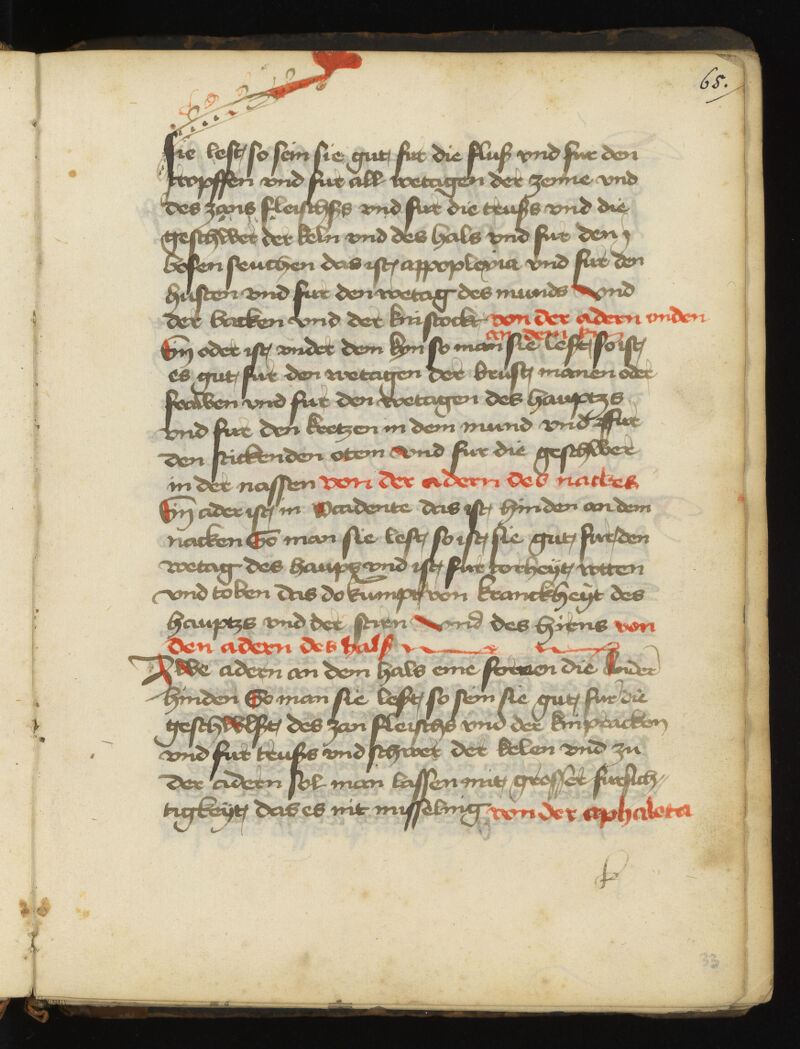 65.
sie lest so sein sie gut fur die fluß vnd fur den
tropffen vnd fur all wetagen der zenne vnd
des zans fleischßs vnd fur die trußs vnd die
geschwer der keln vnd des hals vnd fur den
bosen seuchen das ist appoplexia vnd fur den
husten vnd fur den wetag des munds Vnd
der backen vnd der knistock von der adern vnden
an dem kin
Ein oder ist vnder dem kyn so man sie lest so ist
es gut fur den wetagen der brust mannen oder
frawen vnd fur den wetagen des hauptzs
vnd fur den kretzen in dem mund vnd ffur
den stickenden otem Vnd fur die geschwer
in der nassen von der adern des nackes
Ein ader ist in Occidente das ist hinden an dem
nacken So man sie lest so ist sie gut fur den
wetag des haupts vnd ist fur torheyt wtten
vnd toben das do kumpt von kranckheyt des
hauptzs vnd der stirn Vnd des hirns von
den adern des hals
Zwe adern an dem hals eine forren die Ander
hinden So man sie lest so sein sie gut fur die
geschwlst des zan fleischs vnd der kinpacken
vnd fur trußs vnd schwer der kelen vnd zu
der adern sol man lassen mit grosser fursich-
tigkeyt das es nit misseling von der aphaleta
33